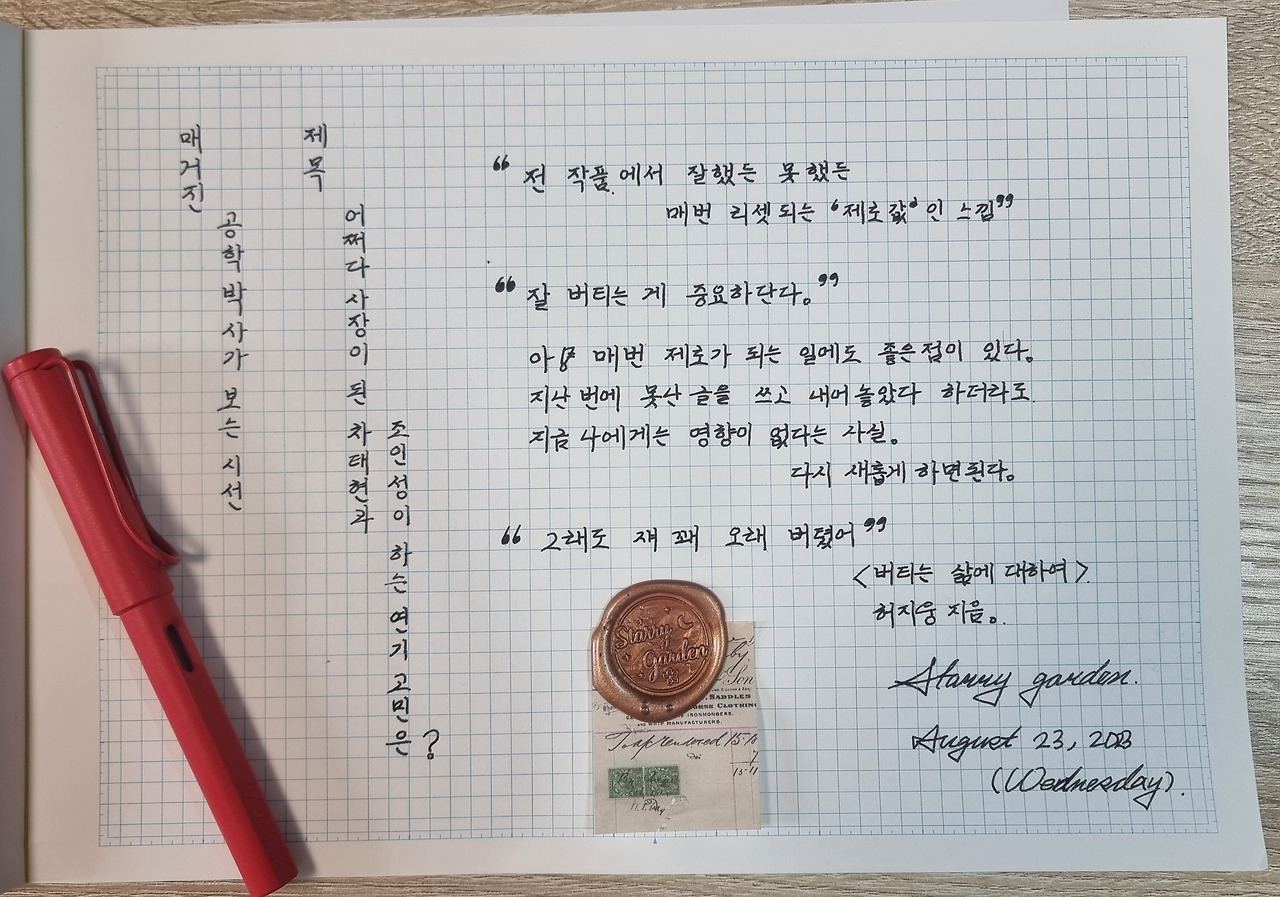 매거진
공학박사가 보는 시선
제목
어쩌다 사장이 된 차태현과
조인성이 하는 연기 고민은?
“ 전 작품에서 잘했든 못했든
매번 리셋되는 ‘제로값’인 느낌”
“ 잘 버티는 게 중요하단다。”
매번 제로가 되는 일에도 좋은점이 있다。
지난번에 못산 글을 쓰고 내어놓았다 하더라도.
지금 나에게는 영향이 없다는 사실。
다시 새롭게 하면된다。
“ 그래도 쟤 꽤 오래 버텼어”
<버티는 삶에 대하여>
허지웅 지음。
Starry garden.
August 23, 2023
(Wednesday).
Starry
Garden
by
Son
SADDLES
HORSE CLOTHIN
IRONMONGERS.
AND WHIP MANUFACTURERS.
rendered 15